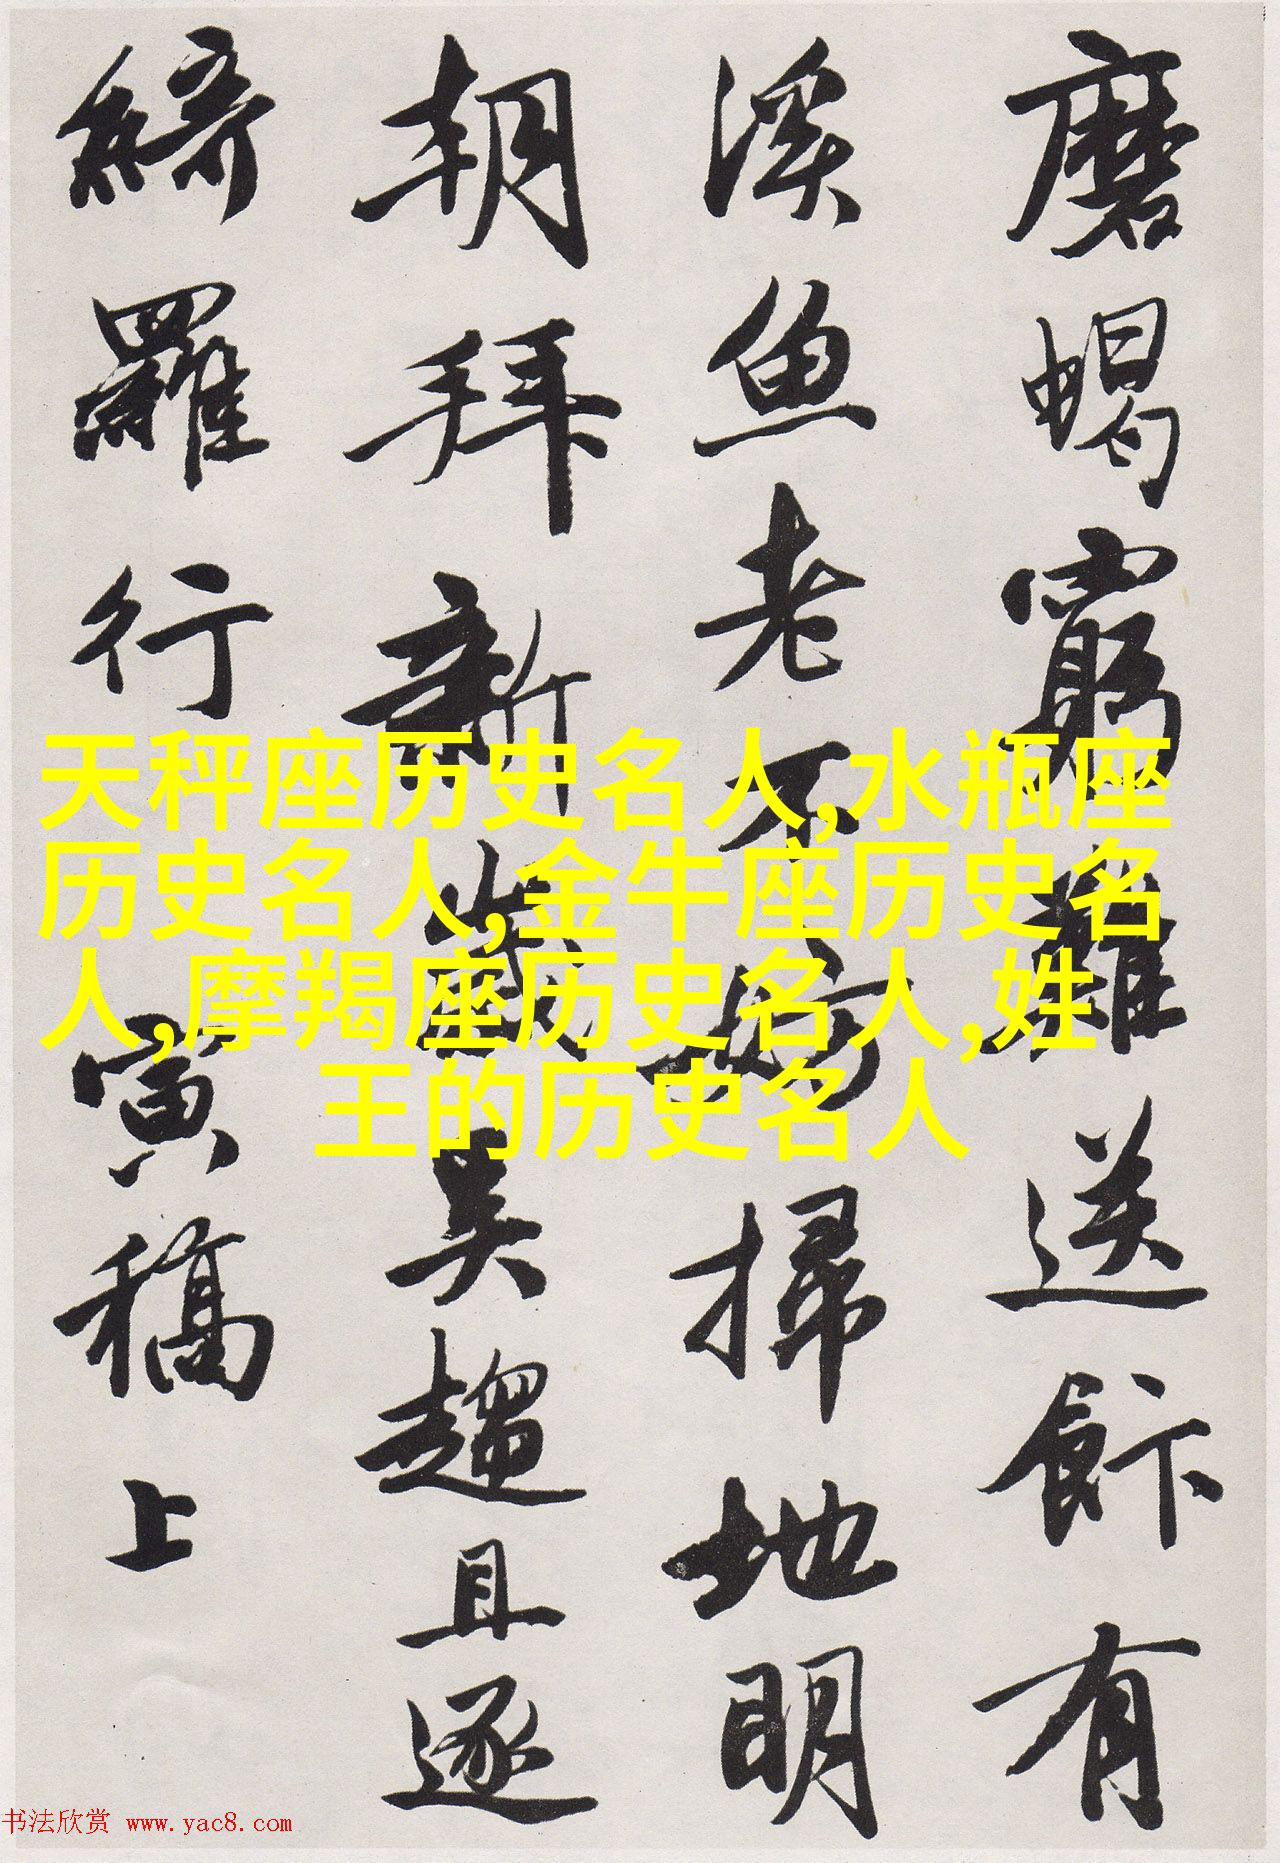 磨蝎窮難送飰有
溪魚老不妨掃地明
朝拜新歲吴趨且逐
綺羅行 寅稿上
天秤座历史名人,水瓶座
历史名人,金牛座历史名
人,摩羯座历史名人,姓
王的历史名人
书法欣赏 www.yac8.com